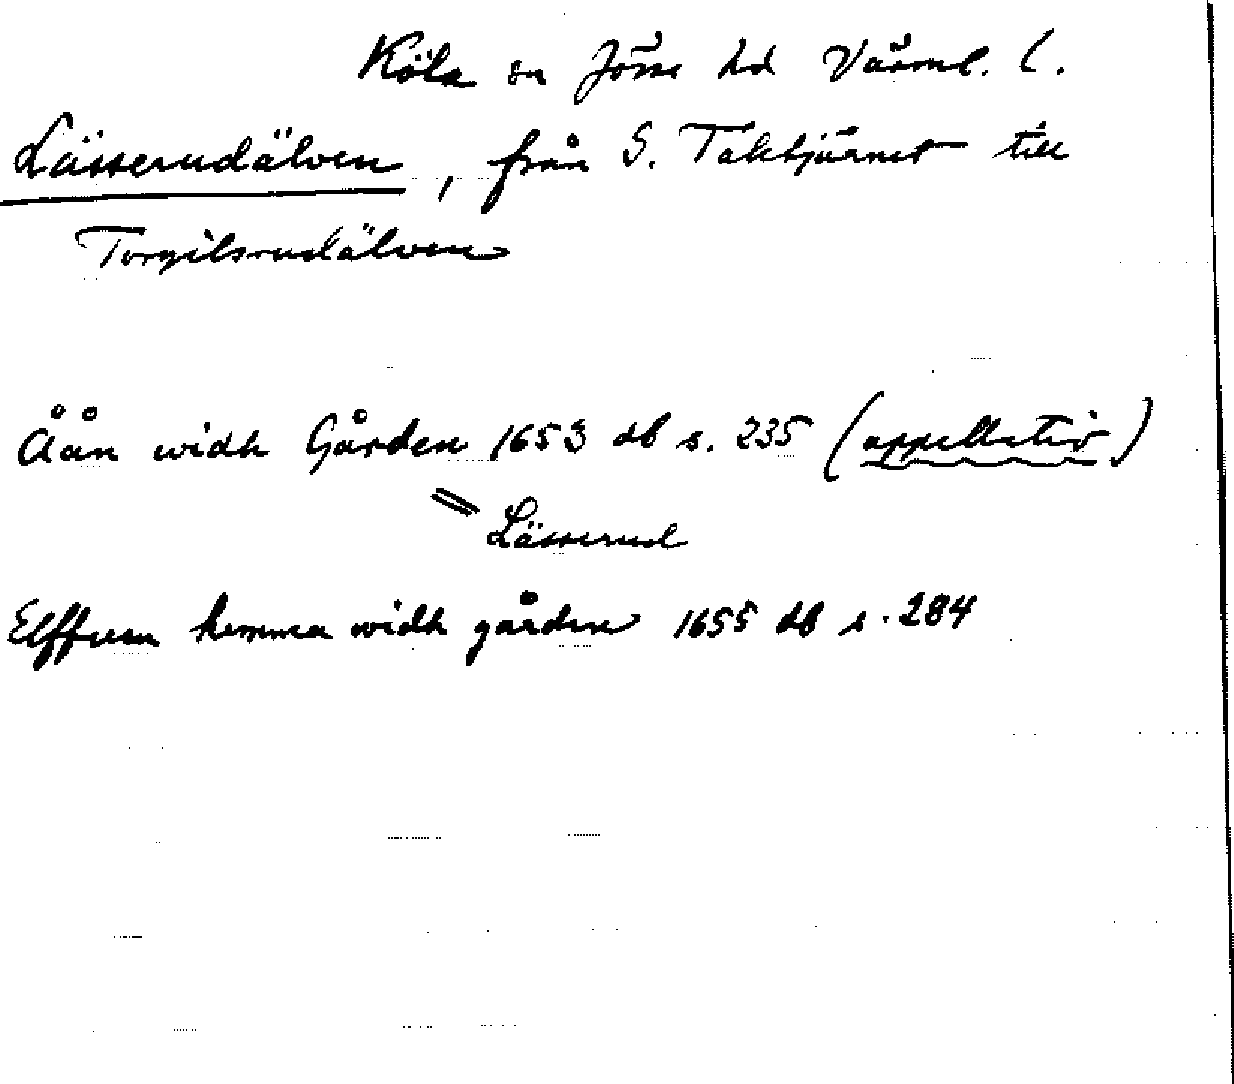 Köla sn Jösse hd Värml. l.
Lässerudälven, från S. Taktjärnet till
Torgilsrudälven
Åån widh Gården 1653 db s. 235 (appellativ)
= Lässerud
Elffuen hemma widh gården 1655 db s. 284